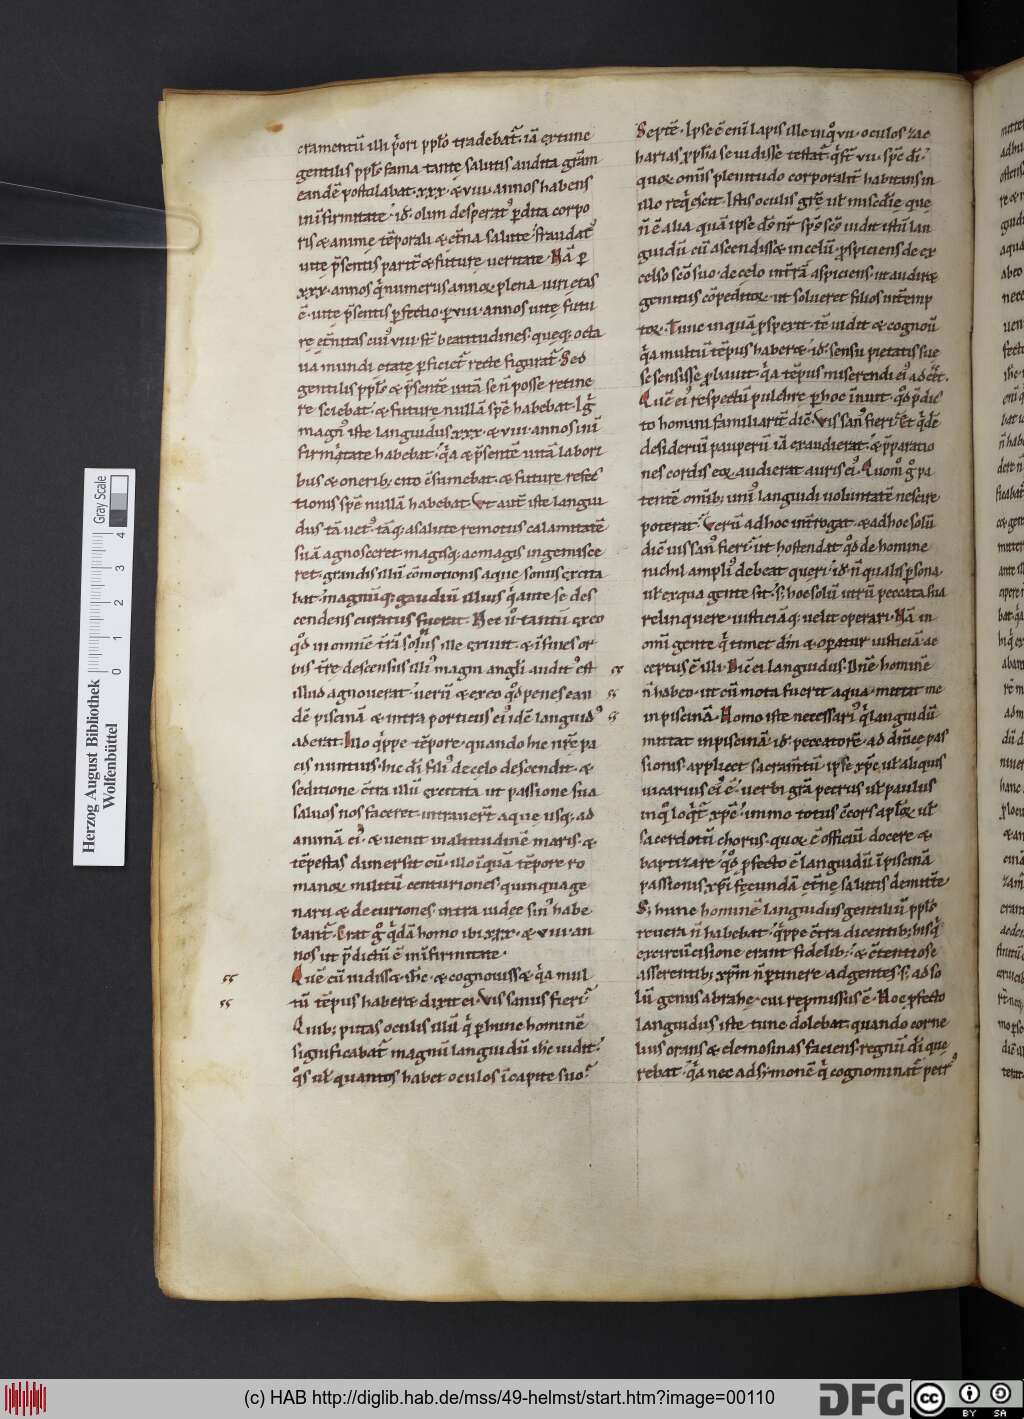 cramentũ illi p̃ori ppl̃o tradebat᷑. iã ex tunc
gentilis ppl̃s fama tantę salutis audita gr̃am
eandẽ postulabat. xxx. & viii. annos habens
in ĩfirmitate. id ̃ olim desperat᷒ p̱dita corpo
ris & animę tẽporali & et̃na salute. fraudat᷒
uite p̃sentis parit̃ & futurę ueritate. Nã p̱
xxx. annos q̃ numerus annoꝝ plena uiri etas
ẽ. uitę p̃sentis p̱fectio. p̱ viii. annos uitę futu
rę et̃nitas cui᷒ viii st̃ beatitudines. queq; octa
ua mundi etate p̱ficict᷑ recte figurat᷑. Sed
gentilis ppl̃s & p̃sentẽ uitã se ñ posse retine
re sciebat. & futurę nullã spẽ habebat. Ig̃
magn᷒ iste languidus xxx. & viii. annos inĩ
firmitate habebat. q̃a & p̃sentẽ uitã labori
bus & onerib; cito cẽsumebat. & futurę refec
tionis spẽ nullã habebat. Vt aut̃ iste langui
dus tã uet᷒. tãq; a salute remotus calamitatẽ
suã agnosceret magisq; ac magis ingemisce
ret. grandis illũ cõmotionis aquę sonus excita
bat. magnũq; gaudiũ illius q̃ ante se des
cendens curatus fuerat. Nec ũ tantũ ex eo
qd̃ in omnẽ t̃rã son᷒ ille exiuit. & ĩ fines or
bis t̃re descensus illi᷒ magni angl̃i audit᷒ est
illud agnouerat. uerũ & ex eo qd̃ penes ean
dẽ piscinã & intra porticus ei᷒ idẽ languid᷒
aderat. Illo q̃ppe tẽpore. quando hic nr̃ę pa
cis nuntius. hic dĩ fili᷒ de celo descendit. &
seditione c̃tra illũ excitata ut passione sua
saluos nos faceret. intrauer̃t aquę usq; ad
animã ei᷒. & uenit in altitudinẽ maris. &
tẽpestas dimersit eũ. illo ĩquã tẽpore ro
manoꝝ militũ centuriones. quinquage
narii & decuriones. intra iudęę sin᷒ habe
bant᷑. Erat g̃ q̃dã homo ibi xxx. & viii. an
nos ut p̃dictũ ẽ in ĩfirmitate.
Quẽ cũ uidiss& ih̃c. & cognouiss& q̃a mul
tũ tẽpus haber& dixit ei. Vis sanus fieri?
Quib; putas oculis illũ q̃ p̱ hunc hominẽ
significabat᷑ magnũ languidũ ih̃c uidit.
q̃s ul̃ quantos habet oculos ĩ capite suo?
Septẽ. Ipse ẽ enĩ lapis ille in q̃ vii. oculos zac
harias ꝓph̃a se uidisse testat᷑. q̃ st̃ vii. spc̃ dĩ.
quoꝝ om̃is plenitudo corporalit̃ habitans in
illo req̃escit. Istis oculis gr̃ę ul̃ misc̃dię quę
ñ ẽ alia. quã ipse ds̃ nr̃. sps̃ sc̃s uidit istũ lan
guidũ cũ ascendiss& in celũ. ꝓspiciens de ex
celso sc̃o suo. de celo in t̃rã aspiciens. ut audir&
gemitus cõpeditoꝝ. ut solueret filios int̃emp
toꝝ. Tunc inquã ꝓspexit. tẽ uidit & cognouĩ
q̃a multũ tẽpus haber& id ̃ sensu pietatis suę
se sensisse ꝓbauit. q̃a tẽpus miserendi ei᷒ aduẽit.
Quẽ ei᷒ respectũ pulchre p̱ hoc ĩnuit. qd̃ p̃dic
to homini familiarit̃ dic̃. Vis san᷒ fieri? Et q̃dẽ
desideriũ pauperũ iã exaudierat. & p̃paratio
nes cordis eoꝝ audierat auris ei᷒. Quom̃ g̃ pa
tentẽ om̃ib; uni᷒ languidi uoluntatẽ nescire
poterat? Verũ ad hoc int̃rogat. & ad hoc solũ
dic̃ uis san᷒ fieri? ut hostendat qd̃ de homine
nichil ampli᷒ debeat queri. id ̃ ñ qualis p̱sona
ul̃ ex qua gente sit. s; hoc solũ utrũ peccata sua
relinquere. iusticiãq; uelit operari. Nã in
omĩ gente q̃ timet dm̃ & operatur iusticiã ac
ceptus ẽ illi. Dic̃ ei languidus. Dn̄e hominẽ
ñ habeo. ut cũ mota fuerit aqua. mittat me
in piscinã. Homo iste necessari᷒ q̃ languidũ
mittat in piscinã. id ̃ peccatorẽ. ad dn̄ice pas
sionis applicet sacram̃tũ. ipse xp̃c ul̃ aliquis
uicarius ei᷒ ẽ. uerbi gr̃a petrus ul̃ paulus
in q̃ loq̃t᷑ xp̃c. immo totus c̃cors apl̃oꝝ ul̃
sacerdotũ chorus. quoꝝ ẽ officiũ docere &
baptizare. qd̃ ꝓfecto ẽ languidũ ĩ piscinã
passionis xp̃i fęcundã et̃nę salutis demitt̃e.
S; hunc hominẽ languidus gentiliũ ppl̃s
reuera ñ habebat. q̃ppe c̃tra dicentib; his q̃
ex circũcisione erant fidelib;. & c̃tentiose
asserentib; xp̃m ñ p̱tinere ad gentes. s; ad so
lũ genus abrahę. cui repmissus ẽ. Hoc ꝓfecto
languidus iste tunc dolebat. quando corne
lius orans & elemosinas faciens. regnũ dĩ quę
rebat. q̃a nec ad symonẽ q̃ cognominat᷑ petr᷒
Gray Scale
0 1 2 3 4
Herzog August Bibliothek
Wolfenbüttel
(c) HAB http://diglib.hab.de/mss/49-helmst/start.htm?image=00110
DFG
cc BY SA